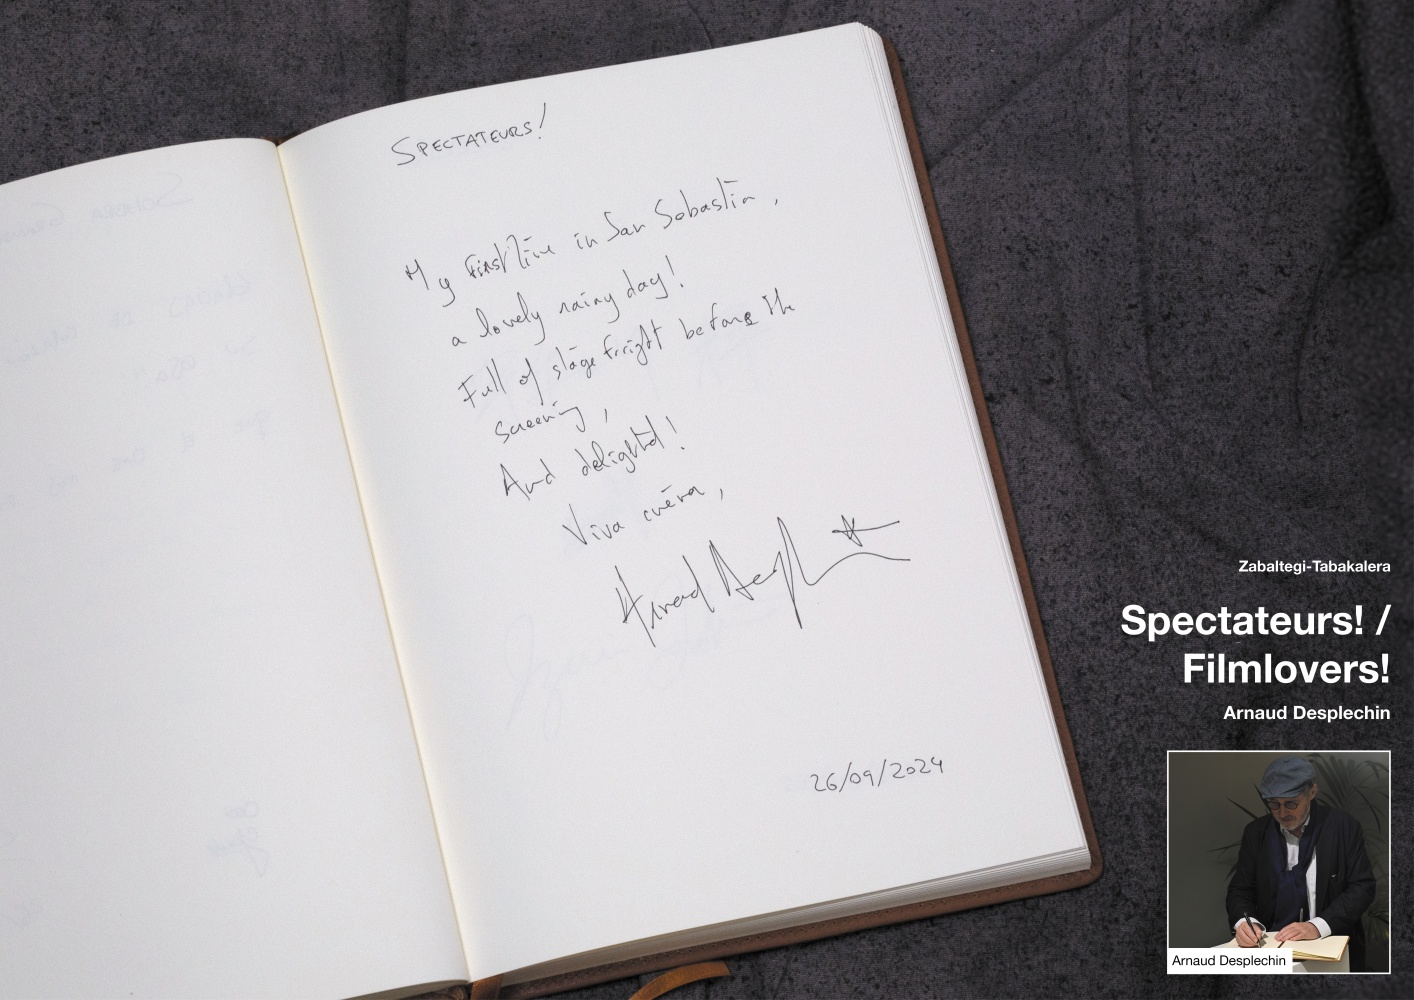 SPECTATEURS!
My first time in San Sebastian,
a lovely rainy day!
Full of stage fright before the
screening,
And delighted!
Viva cinéma,
Arnaud Desplechin
26/09/2024
Zabaltegi-Tabakalera
Spectateurs! /
Filmlovers!
Arnaud Desplechin
Arnaud Desplechin